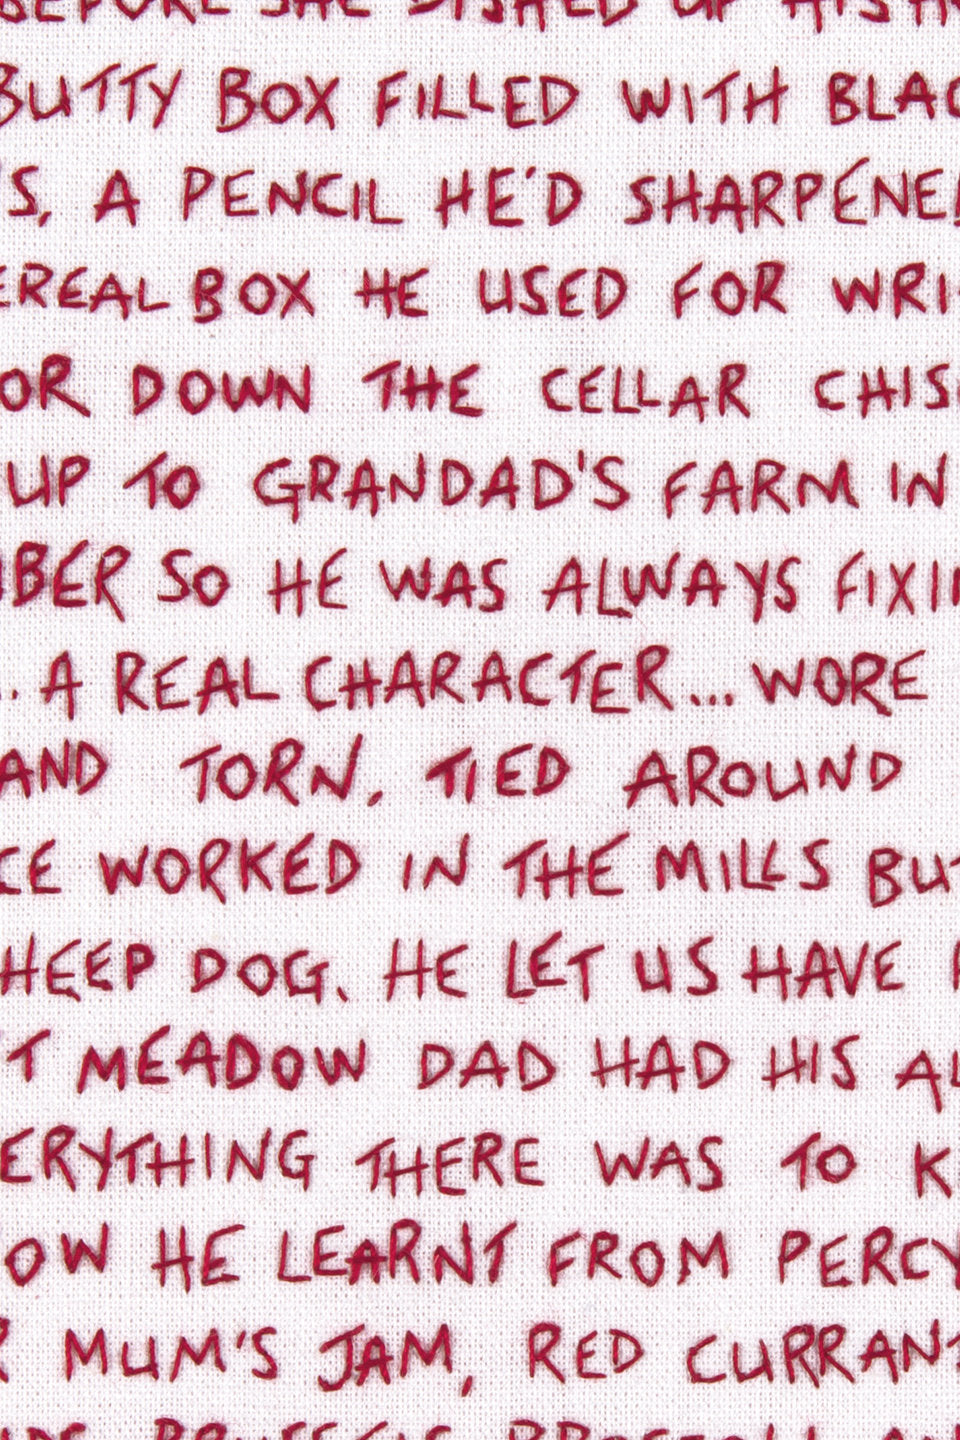 BEFORE SHE DISHED UP HIS
BUTTY BOX FILLED WITH BLAC
'S, A PENCIL HE'D SHARPENED
EREAL BOX HE USED FOR WRI
OR DOWN THE CELLAR CHIS
UP TO GRANDAD'S FARM IN
BER SO HE WAS ALWAYS FIXIN
.. A REAL CHARACTER... WORE
AND TORN, TIED AROUND
CE WORKED IN THE MILLS BUT
HEEP DOG. HE LET US HAVE
T MEADOW DAD HAD HIS AL
ERYTHING THERE WAS TO K
OW HE LEARNT FROM PERCY
R MUM'S JAM, RED CURRANT